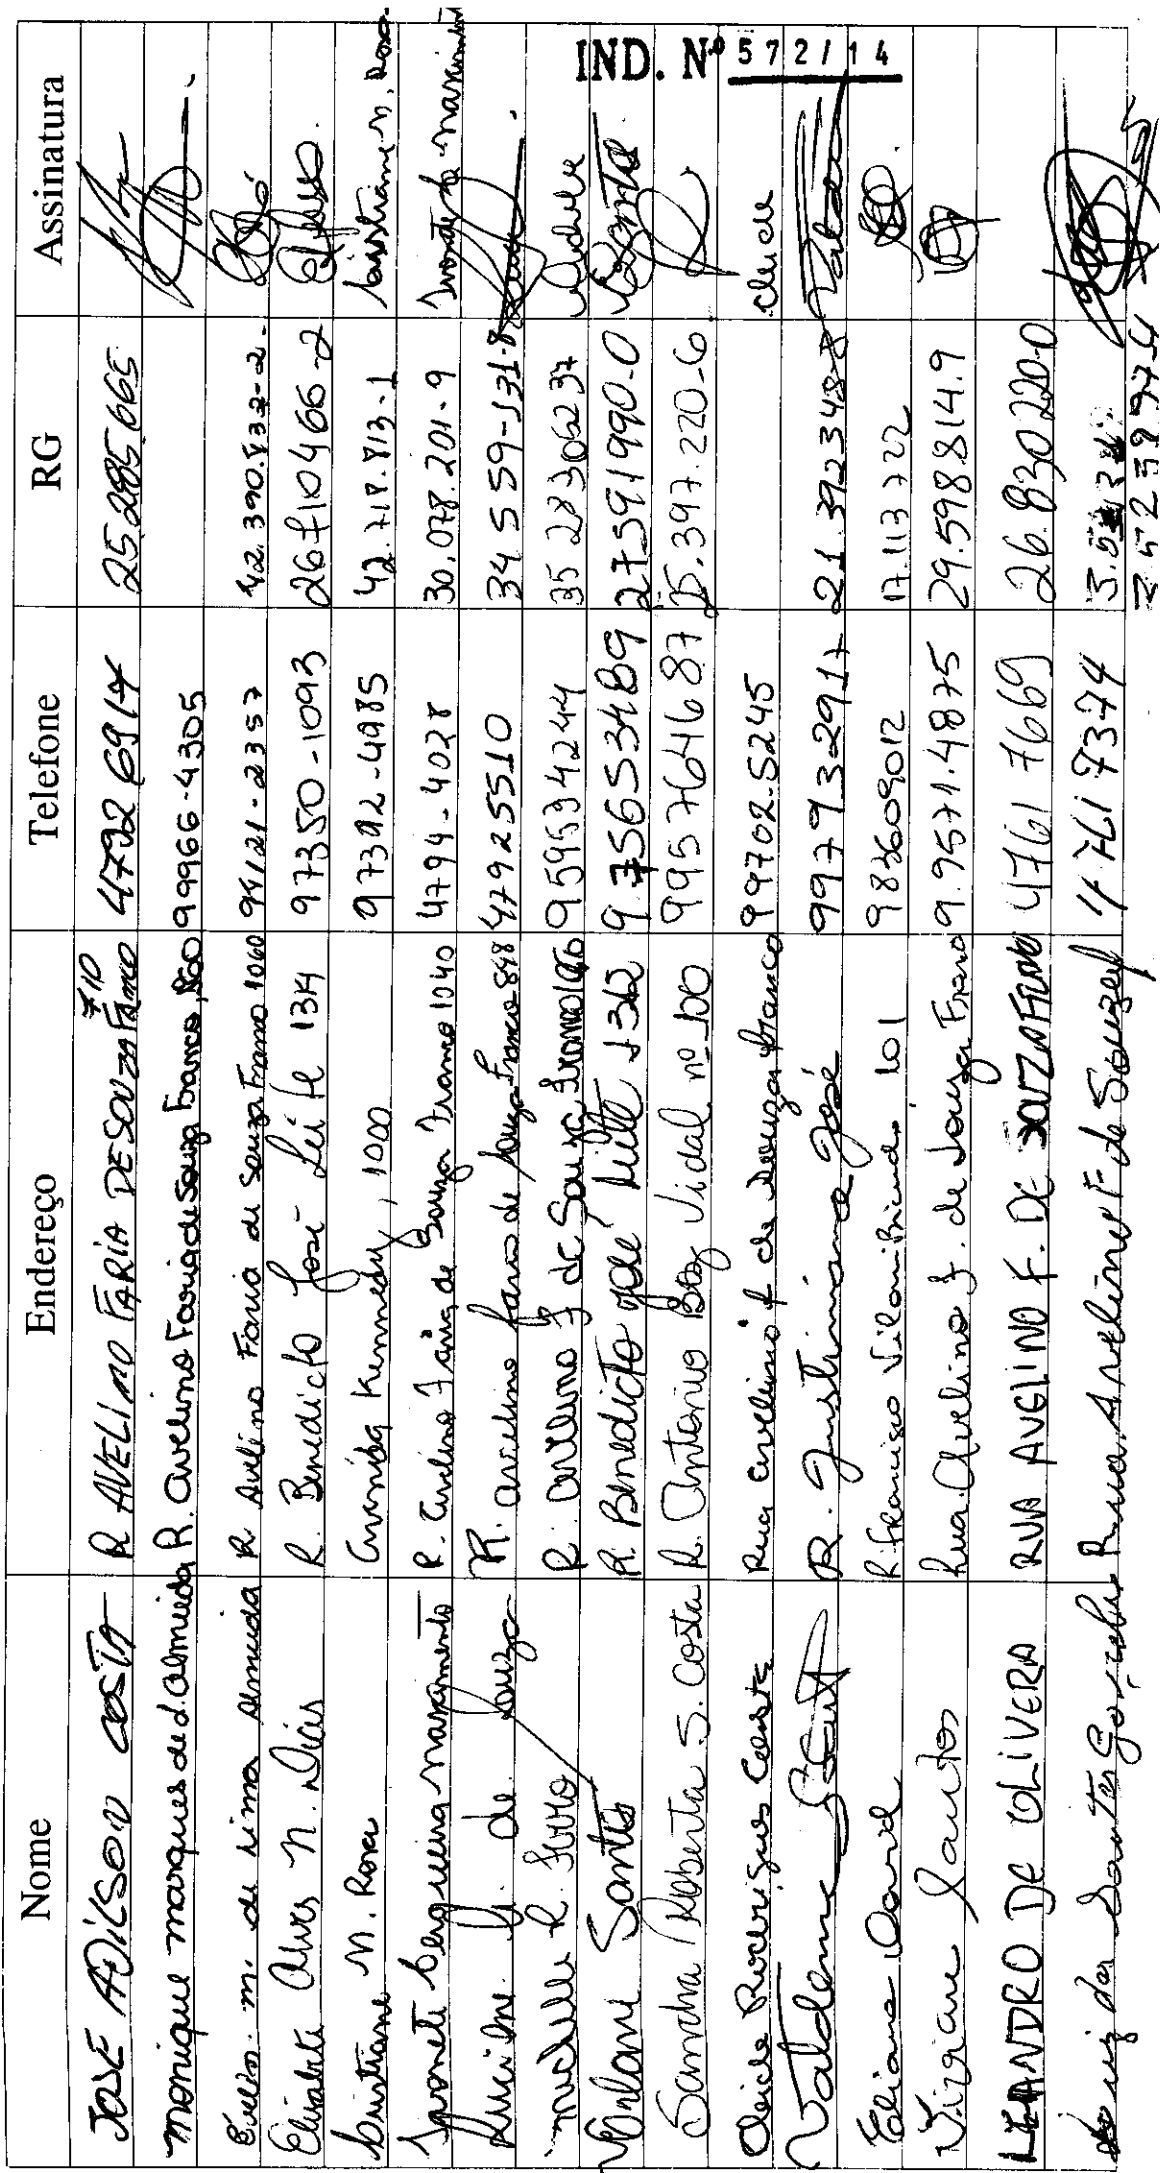 IND. Nº 572/14
Nome Endereço Telefone RG Assinatura
JOSE ADILSON COSTA R AVELINO FARIA DE SOUZA FRANCO 710 4792 6914 25.285.665
Monique marques de d. almeida R. Avelino Faria de Souza Franco, 860 99966-4305
Evelin. m. de Lima Almeida R Avelino Faria de Souza Franco 1060 94121-2357 42.390.832-2
Elisabete Alves N. Dias R. Benedicto José Leite 1314 97350-1093 26710466-2
Cristiane N. Rosa Avenida Kennedy, 1000 97392-4985 42.718.813-1 Cristiane N. Rosa
Ivonete Cerqueira nascimento R. Avelino Faria de Souza Franco 1040 4794-4028 30.078.201-9 Ivonete nascimento
de Souza R. avelino faria de Souza Franco 898 47925510 34 559-131-8
michelle R. R. avelino f de Souza Franco 959534244 35 28306237 Michelle
Santos R. Benedicto José Leite 1312 9.75653489 27591990-0
Sandra Roberta S. Costa R. Antonio Braz Vidal nº 100 995764687 25.397.220-6
Cleide Rodrigues Costa Rua Avelino f de Souza franco 99702-5245 Cleide
Valdemir R. Justiniana José 99793-2917 21.392348-8
Eliane R. Francisco 101 983609012 17.113722
Santos Rua Avelino f. de Souza Franco 9.9571.4875 29.598.814.9
LEANDRO DE OLIVERA RUA AVELINO F. DE SOUZA FRANCO 4761 7669 26.830220-0
dos Santos Rua Avelino F de Souza 4761 7374